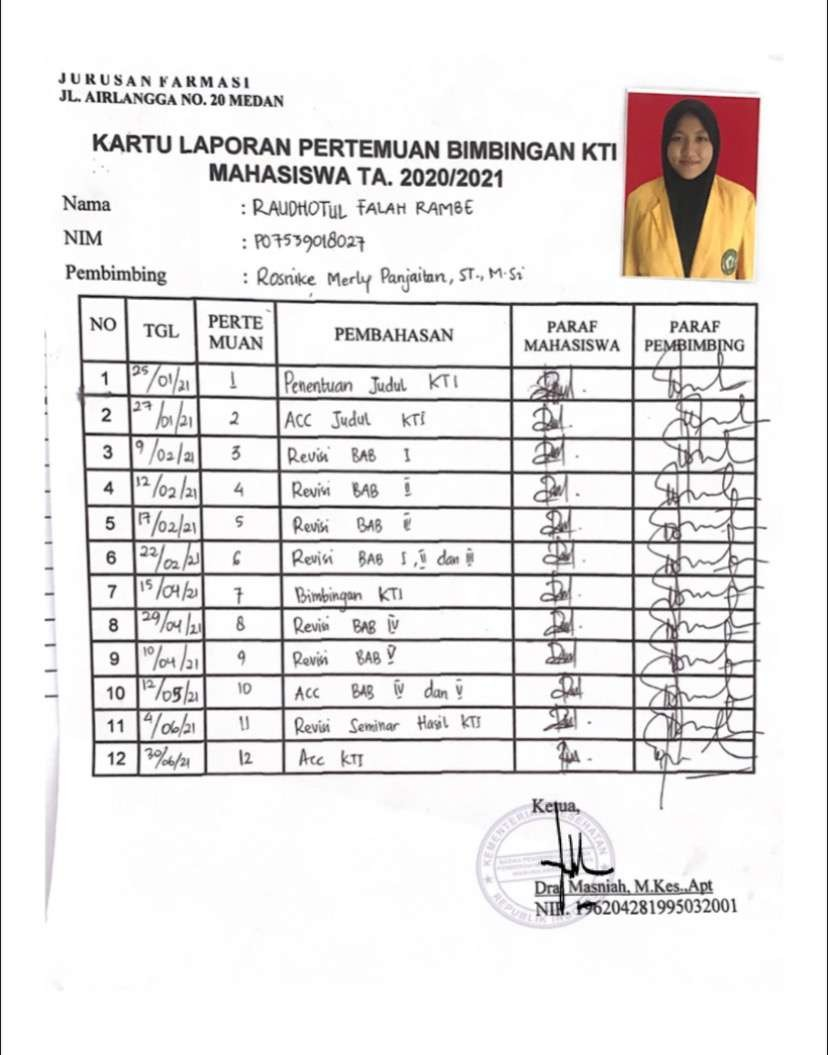 JURUSAN FARMASI
JL. AIRLANGGA NO. 20 MEDAN
KARTU LAPORAN PERTEMUAN BIMBINGAN KTI
MAHASISWA TA. 2020/2021
Nama : RAUDHOTUL FALAH RAMBE
NIM : P07539018027
Pembimbing : Rosnike Merly Panjaitan, ST., M.Si
NO TGL PERTE MUAN PEMBAHASAN PARAF MAHASISWA PARAF PEMBIMBING
1 25/01/21 1 Penentuan Judul KTI
2 27/01/21 2 ACC Judul KTI
3 9/02/21 3 Revisi BAB I
4 12/02/21 4 Revisi BAB II
5 17/02/21 5 Revisi BAB
6 22/02/21 6 Revisi BAB I, II dan III
7 15/04/21 7 Bimbingan KTI
8 29/04/21 8 Revisi BAB IV
9 10/04/21 9 Revisi BAB V
10 12/05/21 10 Acc BAB IV dan V
11 4/06/21 11 Revisi Seminar Hasil KTI
12 30/06/21 12 Acc KTI
Ketua,
KEMENTERIAN KESEHATAN
REPUBLIK
Dra. Masniah, M.Kes.,Apt
NIP. 196204281995032001